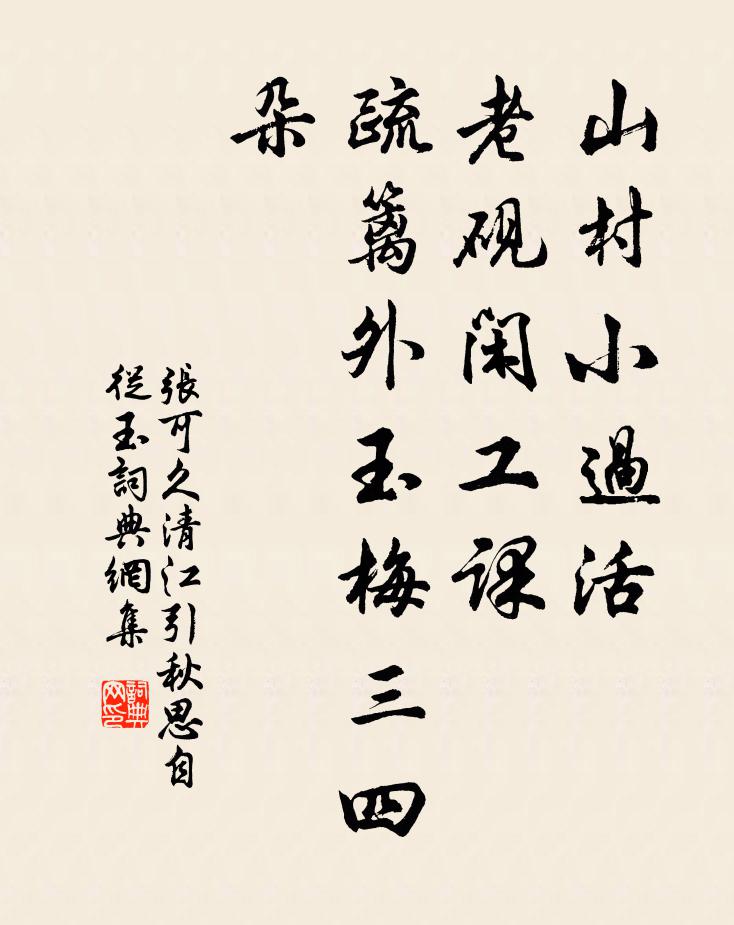 山村小過活
老硯閑工課
疏籬外玉梅三四
朵
張可久清江引秋思自
從玉詞典網集
詞典
网印